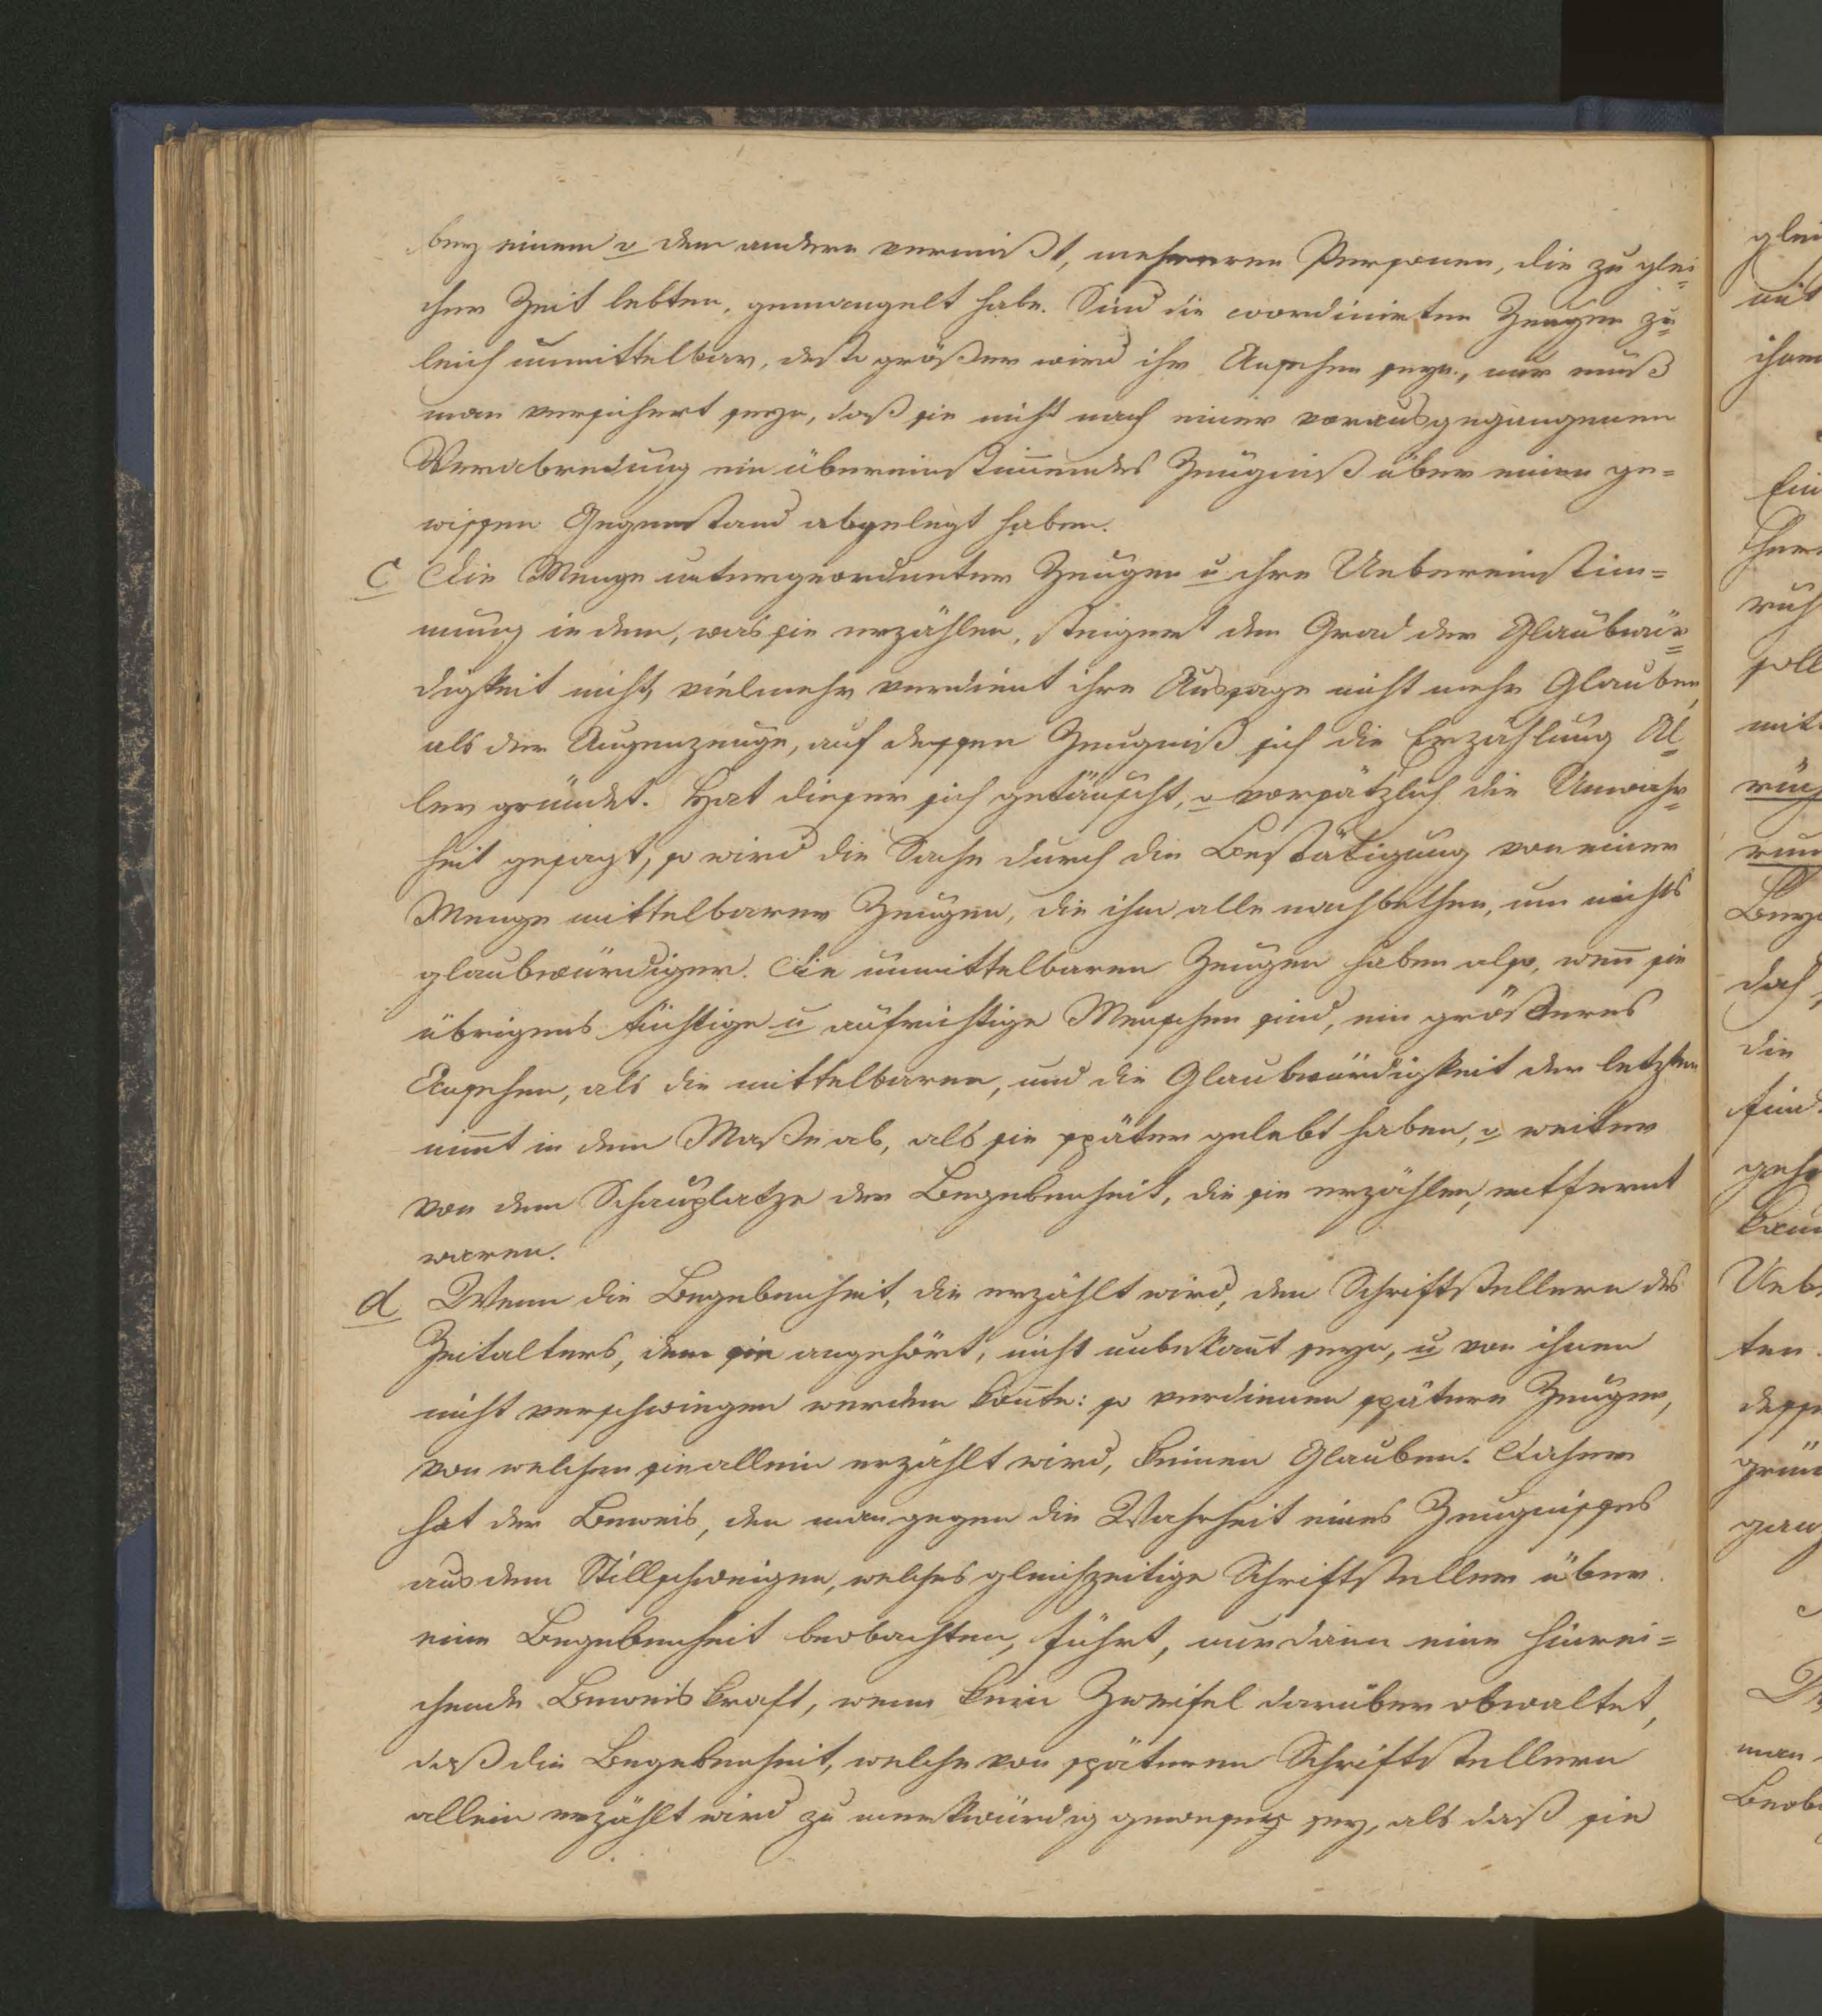 bey einem o dem andern vermißt, mehreren Personen, die zu glei=
cher Zeit lebten, gemangelt habe. Sind die coordinirten Zeugen zu=
leich unmittelbar, desto größer wird ihr Ansehen seyn, nur muß
man versichert seyn, daß sie nicht nach einer vorausgegangenen
Verabredung ein übereinstim̄endes Zeugniß über einen ge=
wissen Gegenstand abgelegt haben.
c Die Menge untergeordneter Zeugen u ihre Uebereinstim=
mung in dem, was sie erzählen, steigert den Grad der Glaubwür=
digkeit nicht, vielmehr verdient ihre Aussage nicht mehr Glauben,
als der Augenzeuge, auf dessen Zeugniß sich die Erzählung Al=
ler gründet. Hat dieser sich getäuscht, o vorsätzlich die Unwahr=
heit gesagt, so wird die Sache durch die Bestätigung von einer
Menge mittelbarer Zeugen, die ihm alle nachbethen, um nichts
glaubwürdiger. Die unmittelbaren Zeugen haben also, wen̄ sie
übrigens tüchtige u aufrichtige Menschen sind, ein größeres
Ansehen, als die mittelbaren, und die Glaubwürdigkeit der letztern
nim̄t in dem Maße ab, als sie später gelebt haben, o weiter
von dem Schauplatze der Begebenheit, die sie erzählen, entfernt
waren.
d Wenn die Begebenheit, die erzählt wird, den Schriftstellern des
Zeitalters, dem sie angehört, nicht unbekan̄t seyn, u von ihnen
nicht verschwiegen werden kon̄te: so verdienen spätere Zeugen,
von welchen sie allein erzählt wird, keinen Glauben. Daher
hat der Beweis, den man gegen die Wahrheit eines Zeugnisses
aus dem Stillschweigen, welches gleichzeitige Schriftsteller über
eine Begebenheit beobachten, führt, nur dann eine hinrei=
chende Beweiskraft, wenn kein Zweifel darüber obwaltet,
daß die Begebenheit, welche von späteren Schriftstellern
allein erzählt wird zu merkwürdig gewesen sey, als daß sie